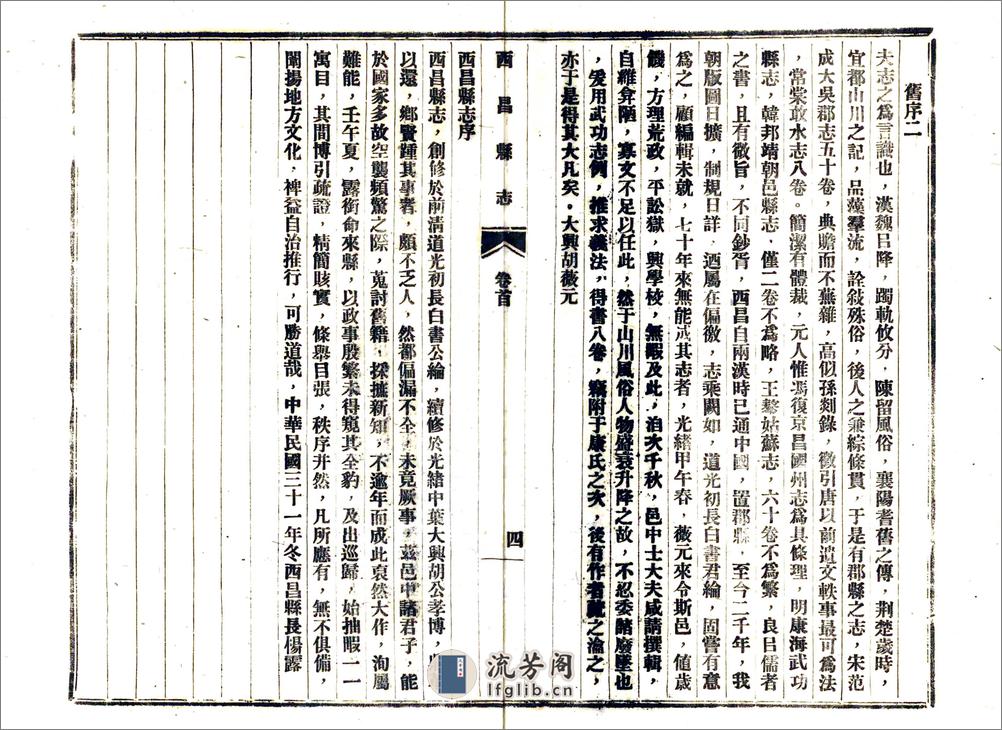 舊序二
夫志之為言識也，漢魏㠯降，躅軌攸分，陳留風俗，襄陽耆舊之傳，荆楚歲時，
宜都山川之記，品藻羣流，詮敍殊俗，後人之兼綜條貫，于是有郡縣之志，宋范
成大吳郡志五十卷，典贍而不蕪雜，高似孫剡錄，徵引唐以前遺文軼事最可為法
，常棠敢水志八卷。簡潔有體裁，元人惟馮復京昌國州志為具條理，明康海武功
縣志，韓邦靖朝邑縣志，僅二卷不為略，王鏊姑蘇志，六十卷不為繁，良㠯儒者
之書，且有微旨，不同鈔胥，西昌自兩漢時已通中國，置郡縣，至今二千年，我
朝版圖日擴，制規日詳，迺屬在偏徼，志乘闕如，道光初長白書君綸，固嘗有意
為之，顧編輯未就，七十年來無能成其志者，光緒甲午春，薇元來令斯邑，値歲
饑，方理荒政，平訟獄，興學校，無暇及此，洎次千秋，邑中士大夫咸請撰輯，
自維弇陋，寡文不足以任此，然于山川風俗人物盛衰升降之故，不忍委諸廢墜也
，爰用武功志例，推求義法，得書八卷，竊附于康氏之次，後有作者踵之論之，
亦于是得其大凡矣。大興胡薇元
西昌縣志
卷首
四
西昌縣志序
西昌縣志，創修於前清道光初長白書公綸，續修於光緒中葉大興胡公孝博，
以還，鄉賢踵其事者，頗不乏人，然都偏漏不全，未竟厥事，茲邑中諸君子，能
於國家多故空襲頻驚之際，蒐討舊籍，探摭新知，不逾年而成此裒然大作，洵屬
難能，壬午夏，露銜命來縣，以政事殷繁未得窺其全豹，及出巡歸，始抽暇一一
寓目，其間博引疏證，精簡賅實，條舉目張，秩序井然，凡所應有，無不俱備，
闡揚地方文化，裨益自治推行，可勝道哉，中華民國三十一年冬西昌縣長楊露
流芳阁
lfglib.cn